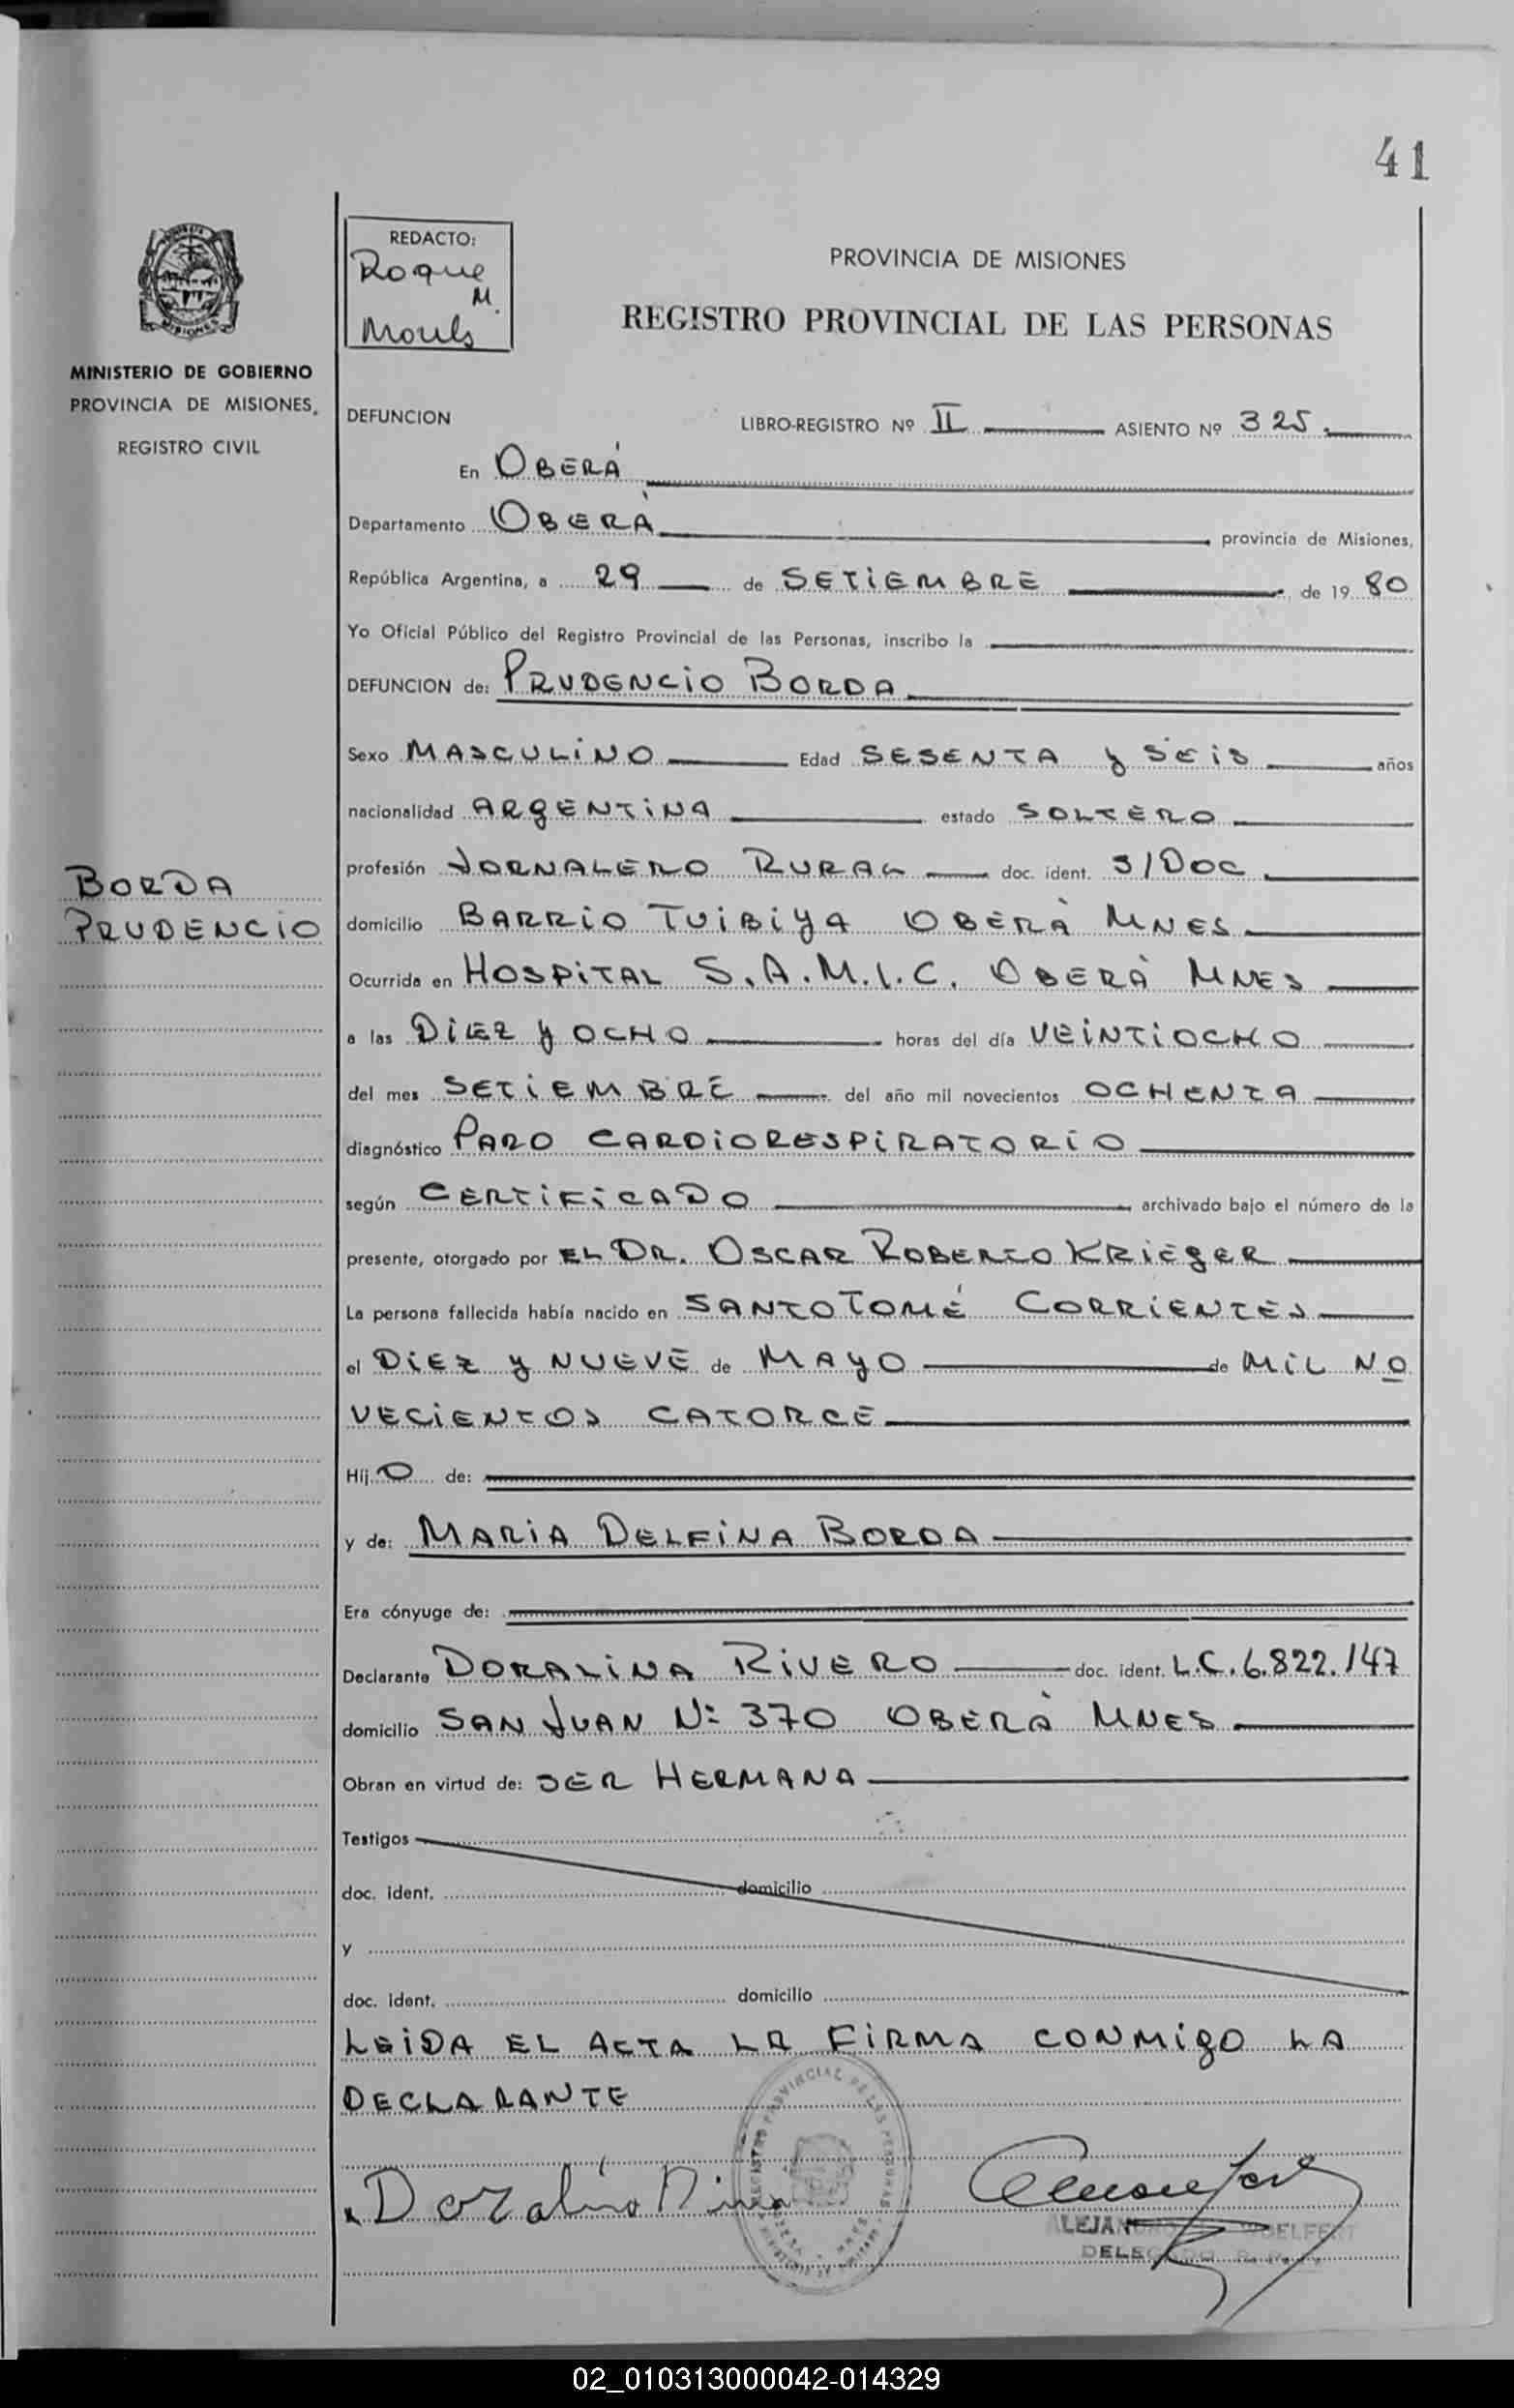 41
REDACTO:
Roque
M.
PROVINCIA DE MISIONES
REGISTRO PROVINCIAL DE LAS PERSONAS
MISIONES
MINISTERIO DE GOBIERNO
PROVINCIA DE MISIONES,
REGISTRO CIVIL
DEFUNCION LIBRO-REGISTRO Nº II ASIENTO Nº 325.
En OBERÁ
Departamento OBERÁ provincia de Misiones,
República Argentina, a 29 de SETIEMBRE de 19 80
Yo Oficial Público del Registro Provincial de las Personas, inscribo la
DEFUNCION de: PRUDENCIO BORDA
Sexo MASCULINO Edad SESENTA y SEIS años
nacionalidad ARGENTINA estado SOLTERO
profesión JORNALERO RURAL doc. ident. S/DOC
BORDA
PRUDENCIO
domicilio BARRIO TUIBIYA OBERÀ MNES
Ocurrida en HOSPITAL S.A.M.I.C. OBERÀ MNES
a las DIEZ y OCHO horas del día VEINTIOCHO
del mes SETIEMBRE del año mil novecientos OCHENTA
diagnóstico PARO CARDIORESPIRATORIO
según CERTIFICADO archivado bajo el número de la
presente, otorgado por EL DR. OSCAR ROBERTO KRIEGER
La persona fallecida había nacido en SANTO TOMÉ CORRIENTES
el DIEZ y NUEVE de MAYO de MIL NO
VECIENTOS CATORCE
Hij O de:
y de: MARIA DELFINA BORDA
Era cónyuge de:
Declarante DORALINA RIVERO doc. ident. L.C. 6.822.147
domicilio SAN JUAN Nº 370 OBERÀ MNES
Obran en virtud de: SER HERMANA
Testigos
doc. ident. domicilio
y
doc. ident. domicilio
LEIDA EL ACTA LA FIRMA CONMIGO LA
DECLARANTE
REGISTRO PROVINCIAL DE LAS PERSONAS
02_010313000042-014329